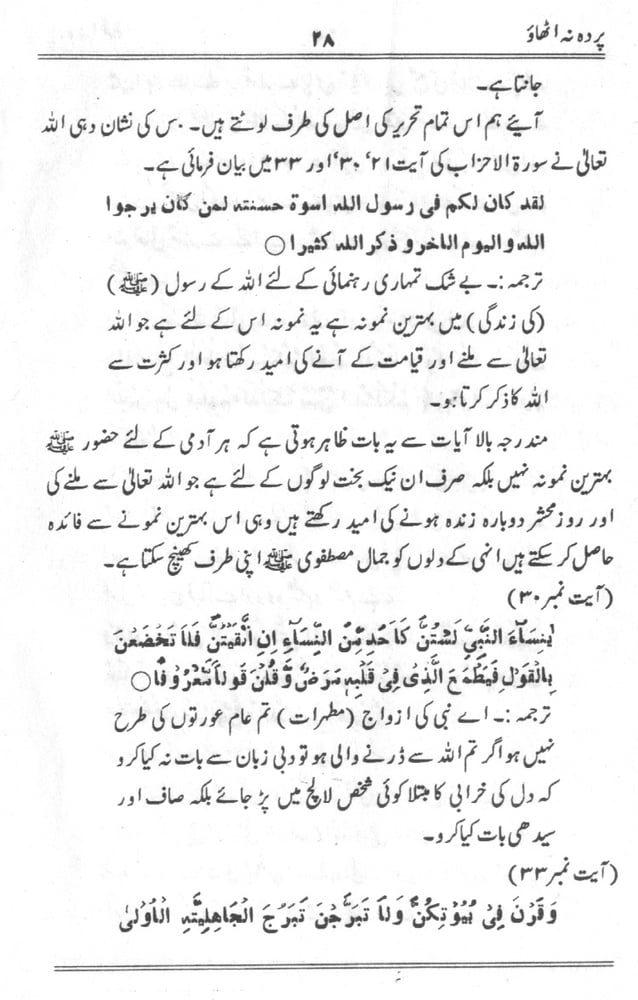 پردہ نہ اٹھاؤ
۲۸
جانتا ہے۔
آیئے ہم اس تمام تحریر کی اصل کی طرف لوٹتے ہیں۔ جس کی نشان دہی اللہ
تعالیٰ نے سورۃ الاحزاب کی آیت ۲۱، ۳۰، اور ۳۳ میں بیان فرمائی ہے۔
لقد کان لکم فی رسول اللہ اسوۃ حسنتہ لمن کان یرجوا
اللہ و الیوم الاخر و ذکر اللہ کثیرا ○
ترجمہ :۔ بے شک تمہاری رہنمائی کے لئے اللہ کے رسول (ﷺ)
(کی زندگی) میں بہترین نمونہ ہے یہ نمونہ اس کے لئے ہے جو اللہ
تعالیٰ سے ملنے اور قیامت کے آنے کی امید رکھتا ہو اور کثرت سے
اللہ کا ذکر کرتا ہو۔
مندرجہ بالا آیات سے یہ بات ظاہر ہوتی ہے کہ ہر آدمی کے لئے حضور ﷺ
بہترین نمونہ نہیں بلکہ صرف ان نیک بخت لوگوں کے لئے ہے جو اللہ تعالیٰ سے ملنے کی
اور روز محشر دوبارہ زندہ ہونے کی امید رکھتے ہیں وہی اس بہترین نمونے سے فائدہ
حاصل کر سکتے ہیں انہی کے دلوں کو جمال مصطفوی ﷺ اپنی طرف کھینچ سکتا ہے۔
(آیت نمبر ۳۰)
یٰنِسَآءَ النَّبِیِّ لَسْتُنَّ کَاَحَدٍ مِّنَ النِّسَآءِ اِنِ اتَّقَیْتُنَّ فَلَا تَخْضَعْنَ
بِالْقَوْلِ فَیَطْمَعَ الَّذِیْ فِیْ قَلْبِہٖ مَرَضٌ وَّ قُلْنَ قَوْلاً مَّعْرُوْفًا ○
ترجمہ :۔ اے نبی کی ازواج (مطہرات) تم عام عورتوں کی طرح
نہیں ہو اگر تم اللہ سے ڈرنے والی ہو تو دبی زبان سے بات نہ کیا کرو
کہ دل کی خرابی کا مبتلا کوئی شخص لالچ میں پڑ جائے بلکہ صاف اور
سیدھی بات کیا کرو۔
(آیت نمبر ۳۳)
وَ قَرْنَ فِیْ بُیُوْتِکُنَّ وَلَا تَبَرَّجْنَ تَبَرُّجَ الْجَاهِلِیَّتِہِ الْاُوْلیٰ